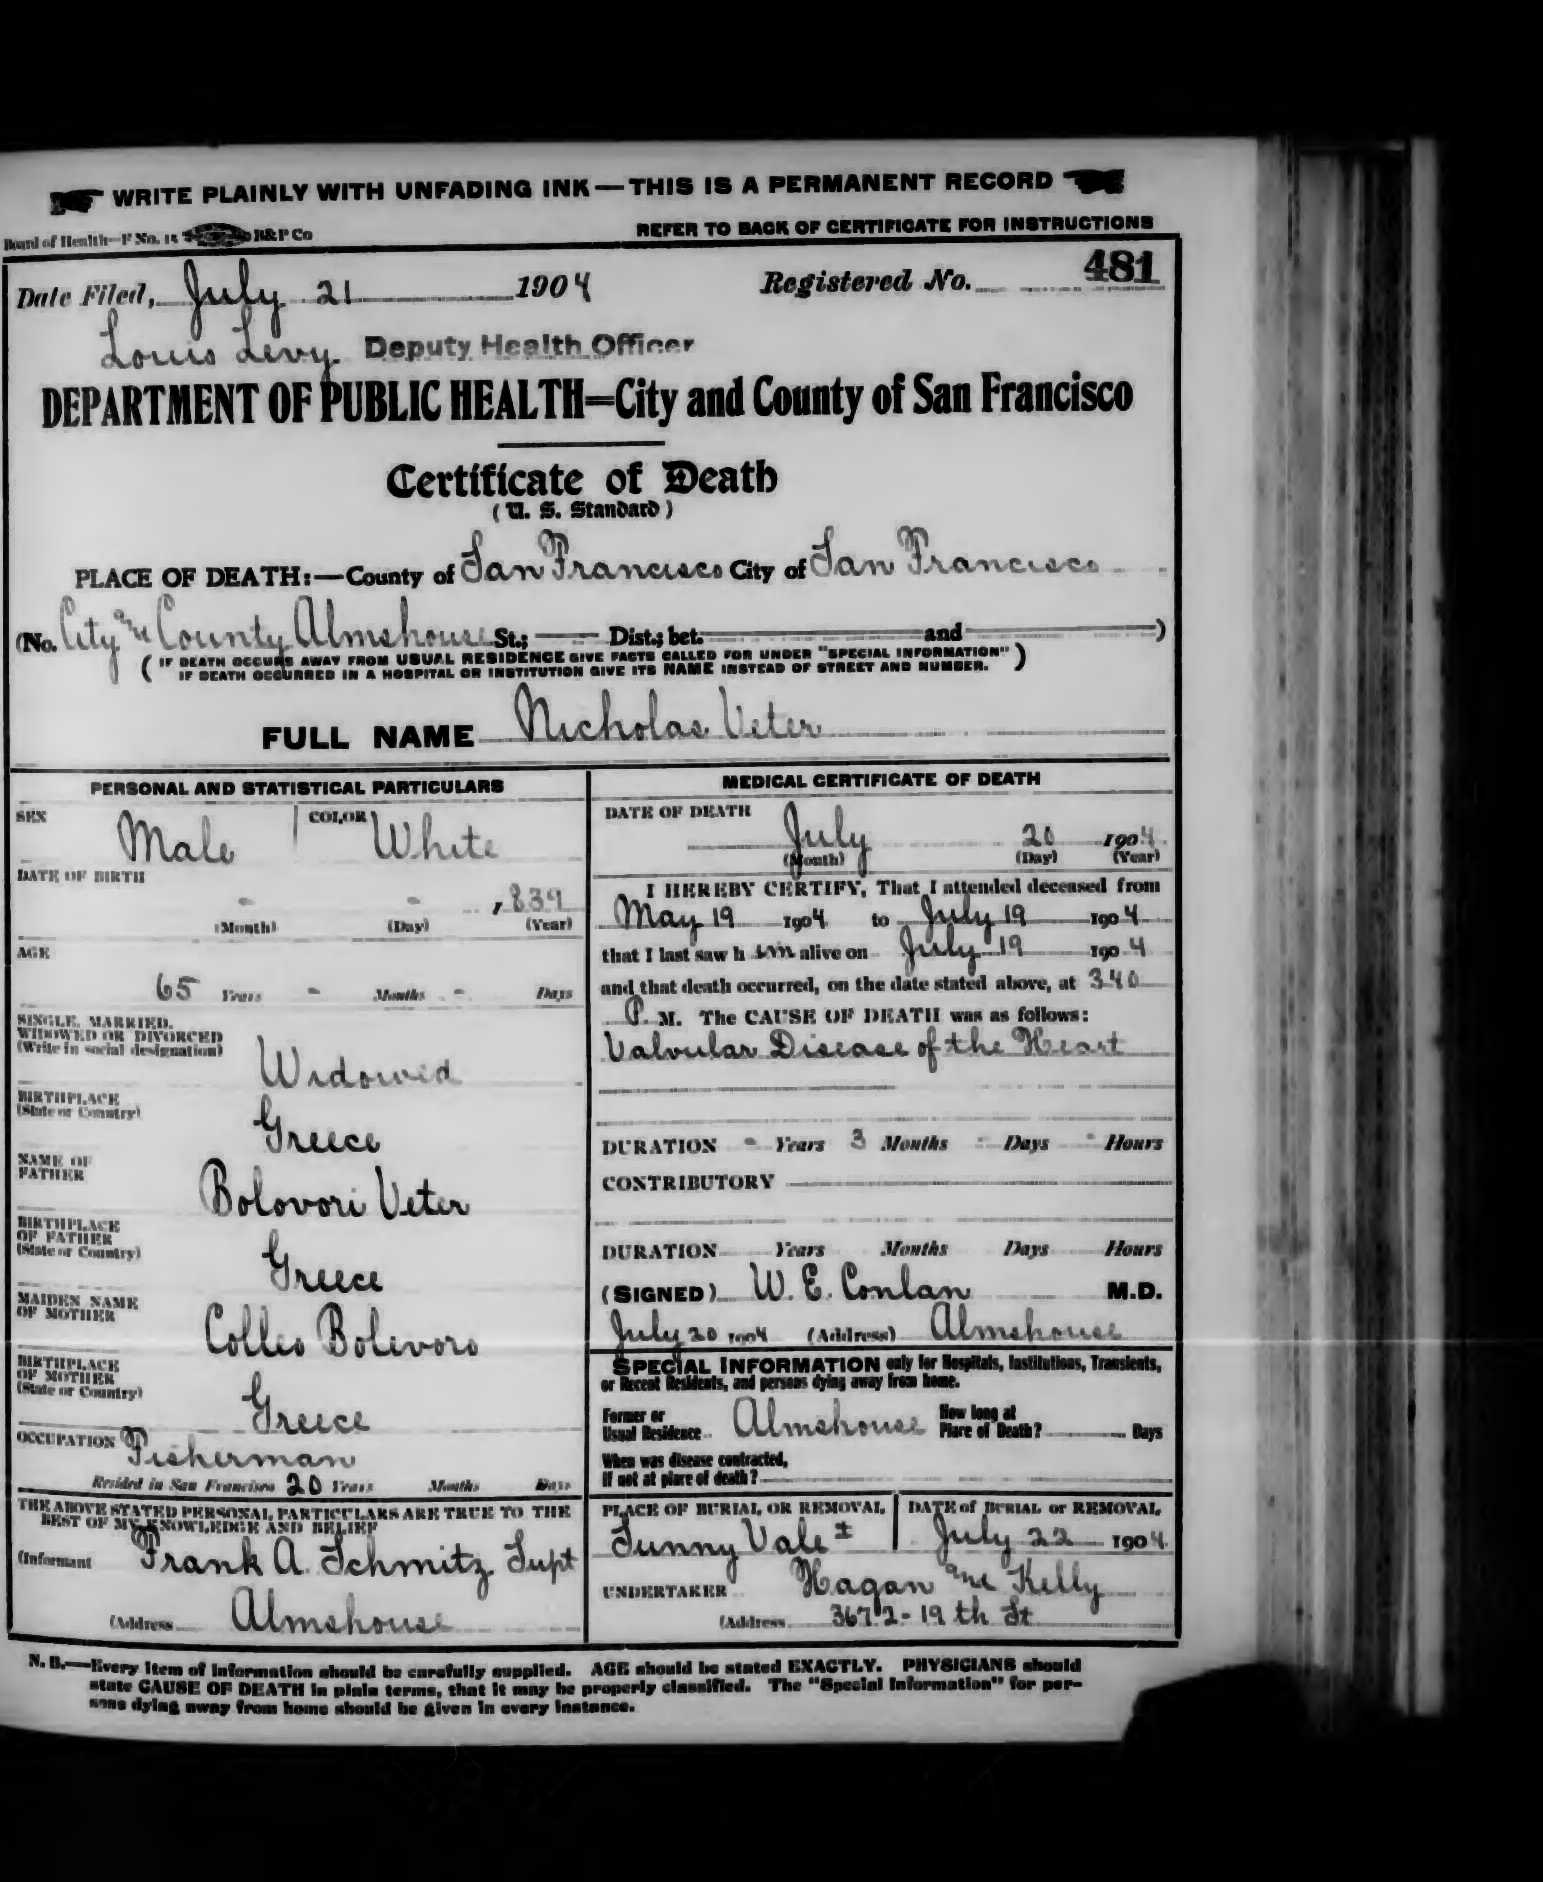 WRITE PLAINLY WITH UNFADING INK—THIS IS A PERMANENT RECORD
Board of Health—F No. 15 B&P Co REFER TO BACK OF CERTIFICATE FOR INSTRUCTIONS
Date Filed, July 21 1904 Registered No. 481
Louis Levy Deputy Health Officer
DEPARTMENT OF PUBLIC HEALTH=City and County of San Francisco
Certificate of Death
(U. S. Standard)
PLACE OF DEATH:—County of San Francisco City of San Francisco
(No. City and County Almshouse St.; Dist.; bet. and )
(IF DEATH OCCURS AWAY FROM USUAL RESIDENCE GIVE FACTS CALLED FOR UNDER "SPECIAL INFORMATION"
IF DEATH OCCURRED IN A HOSPITAL OR INSTITUTION GIVE ITS NAME INSTEAD OF STREET AND NUMBER.)
FULL NAME Nicholas Veter
PERSONAL AND STATISTICAL PARTICULARS
SEX Male COLOR White
DATE OF BIRTH
- - 1839
(Month) (Day) (Year)
AGE
65 Years - Months - Days
SINGLE, MARRIED,
WIDOWED OR DIVORCED
(Write in social designation)
Widowed
BIRTHPLACE
(State or Country)
Greece
NAME OF
FATHER
Bolovori Veter
BIRTHPLACE
OF FATHER
(State or Country)
Greece
MAIDEN NAME
OF MOTHER
Colleo Bolevoro
BIRTHPLACE
OF MOTHER
(State or Country)
Greece
OCCUPATION Fisherman
Resided in San Francisco 20 Years Months Days
THE ABOVE STATED PERSONAL PARTICULARS ARE TRUE TO THE
BEST OF MY KNOWLEDGE AND BELIEF
(Informant Frank A. Schmitz Supt
(Address Almshouse
MEDICAL CERTIFICATE OF DEATH
DATE OF DEATH
July 20 1904
(Month) (Day) (Year)
I HEREBY CERTIFY, That I attended deceased from
May 19 1904 to July 19 1904
that I last saw h im alive on July 19 1904
and that death occurred, on the date stated above, at 3 40
P. M. The CAUSE OF DEATH was as follows:
Valvular Disease of the Heart
DURATION - Years 3 Months - Days - Hours
CONTRIBUTORY
DURATION Years Months Days Hours
(SIGNED) W. E. Conlan M.D.
July 20 1904 (Address) Almshouse
SPECIAL INFORMATION only for Hospitals, Institutions, Transients,
or Recent Residents, and persons dying away from home.
Former or
Usual Residence Almshouse How long at
Place of Death? Days
When was disease contracted,
If not at place of death?
PLACE OF BURIAL OR REMOVAL DATE of BURIAL or REMOVAL
Sunny Vale July 22 1904
UNDERTAKER Hagan and Kelly
(Address 3672 - 19th St
N. B.—Every item of information should be carefully supplied. AGE should be stated EXACTLY. PHYSICIANS should
state CAUSE OF DEATH in plain terms, that it may be properly classified. The "Special Information" for per-
sons dying away from home should be given in every instance.